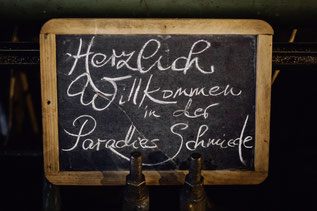 Herzlich
Willkommen
in der
Paradies Schmiede